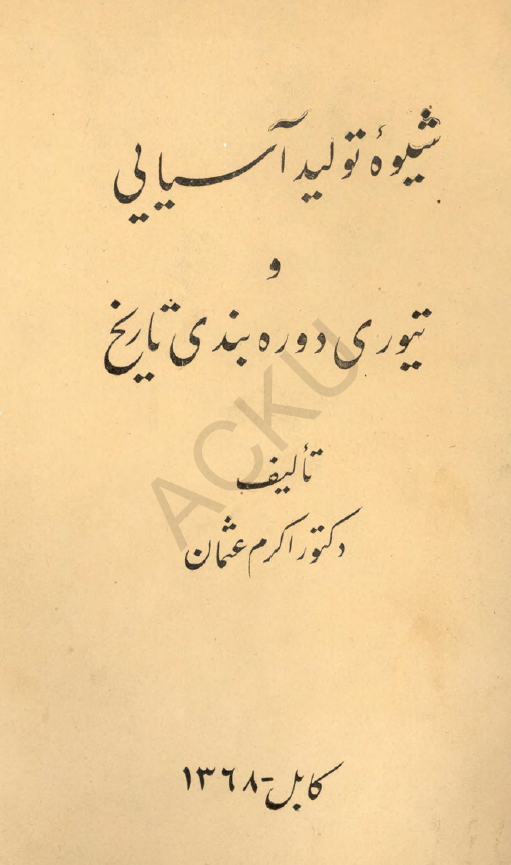 شیوهٔ تولید آسیایی
و
تیوری دوره بندی تاریخ
تألیف
دکتور اکرم عثمان
کابل - ۱۳۶۸
ACKU